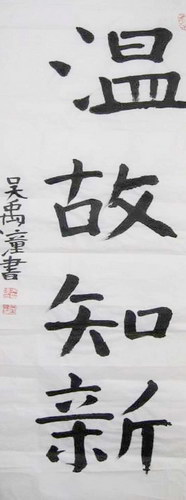 温故知新
吴禹潼書